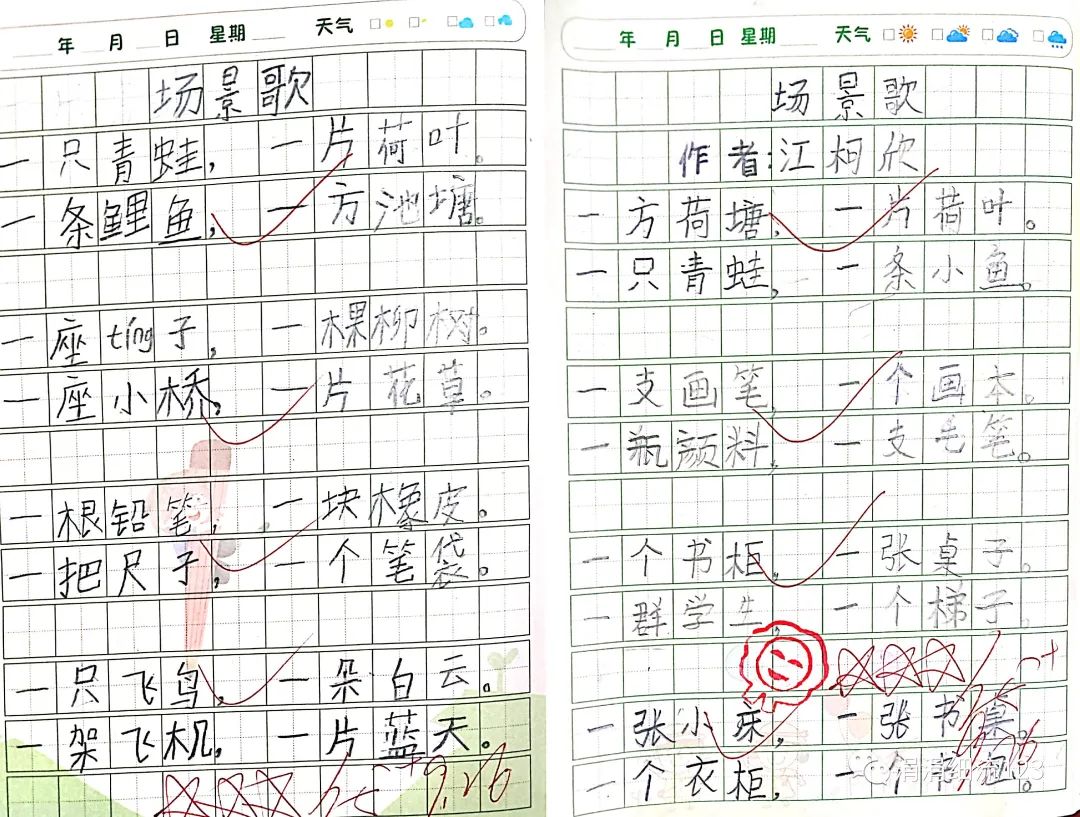 年 月 日 星期 天气
场景歌
一只青蛙，一片荷叶。
一条鲤鱼，一方池塘。
一座tíng子，一棵柳树。
一座小桥，一片花草。
一根铅笔，一块橡皮。
一把尺子，一个笔袋。
一只飞鸟，一朵白云。
一架飞机，一片蓝天。
9.26
年 月 日 星期 天气
场景歌
作者：江柯欣
一方荷塘，一片荷叶。
一只青蛙，一条小鱼。
一支画笔，一个画本。
一瓶颜料，一支毛笔。
一个书柜，一张桌子。
一群学生，一个梯子。
一张小床，一张书桌。
一个衣柜，一个书包。